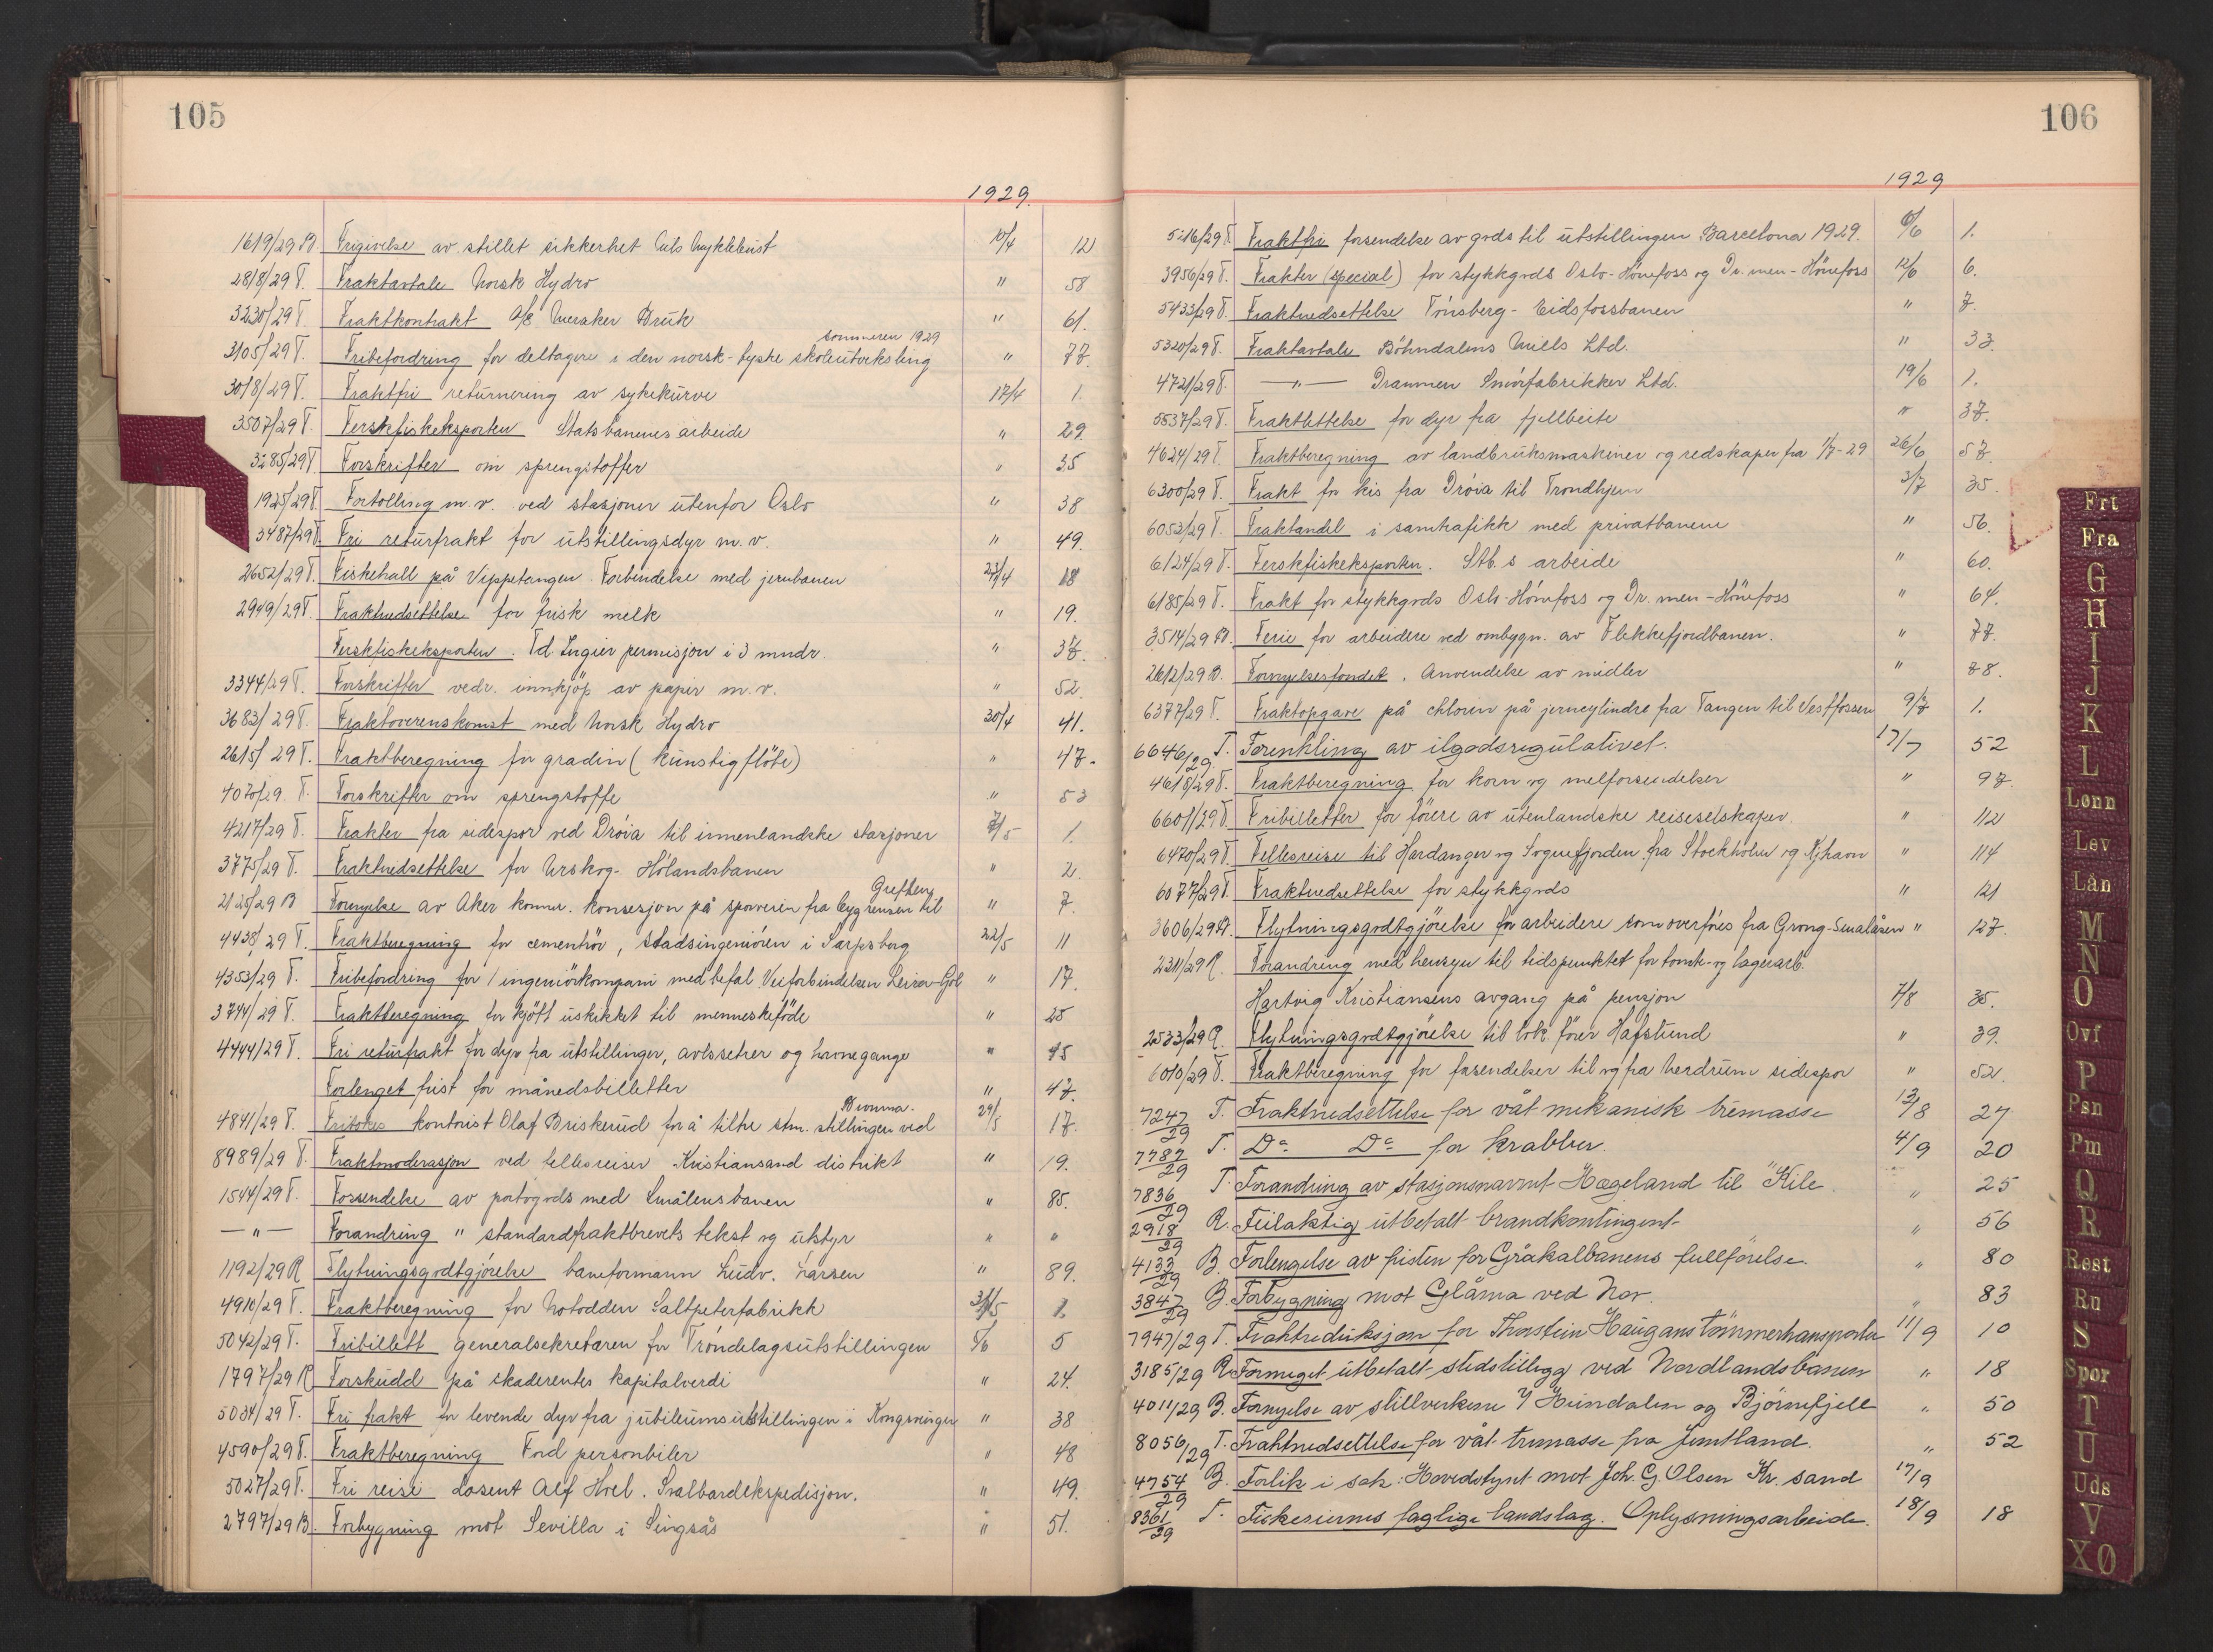 105
1929.
1619/29 B Frigivelse av stillet sikkerhet Nils Myklebust 10/4 12
2818/29 T. Fraktavtale Norsk Hydro " 58
3230/29 T. Fraktkontrakt A/S Meraker Bruk " 61.
sommeren 1929
3105/29 T. Fribefordring for deltagere i den norsk-tyske skoleutveksling " 77.
3018/29 T. Fraktfri returnering av sykekurve 17/4 1.
3507/29 T. Ferskfiskeksporten Statsbanenes arbeide " 29.
3285/29 T. Forskrifter om sprengstoffer " 35
1925/29 T. Fortolling m.v. ved stasjoner utenfor Oslo " 38
3487/29 T. Fri returfrakt for utstillingsdyr m.v. " 49.
2652/29 T. Fiskehall på Vippetangen. Forbindelse med jernbanen 23/4 18
2949/29 T. Fraktnedsettelse for frisk melk " 19.
Ferskfiskeksporten. Td. Ingier permisjon i 3 mndr. " 37.
3344/29 T. Forskrifter vedr. innkjöp av papir m.v. " 52.
3683/29 T. Fraktoverenskomst med Norsk Hydro 30/4 41.
2615/29 T. Fraktberegning for gradin (kunstig flöte) " 47.
4070/29. T. Forskrifter om sprengstoffe " 53
4217/29 T. Frakter fra sidespor ved Dröia til innenlandske stasjoner 7/5 1.
3775/29 T. Fraktnedsettelse for Urskog-Hölandsbanen " 2.
Grefsen
2125/29 B Fornyelse av Aker komm. konsesjon på sporveien fra bygrensen til " 7.
4438/29 T. Fraktberegning for cementrör, stadsingeniören i Sarpsborg 22/5 11
4353/29 T. Fribefordring for 1 ingeniörkompani med befal Veiforbindelsen Leira-Gol " 17.
3744/29 T. Fraktberegning for kjött uskikket til menneskeföde " 25
4444/29 T. Fri returfrakt for dyr fra utstillinger, avlssetrer og havnegange " 45
Forlenget frist for månedsbilletter " 47.
Bromma.
4841/29 T. Fritokes kontorist Olaf Briskerud for å tiltre stm. stillingen ved 29/5 17.
8989/29 T. Fraktmoderasjon ved fellesreiser Kristiansand distrikt " 19.
1544/29 T. Forsendelse av portogods med Smålensbanen " 85.
— " — Forandring " standardfraktbrevets tekst og utstyr " "
1192/29 R Flytningsgodtgjörelse baneformann Ludv. Larsen " 89.
4910/29 T. Fraktberegning for Notodden Saltpeterfabrikk 31/5 1.
5042/29 T. Fribillett generalsekretæren for Tröndelagsutstillingen 5/6 5
1797/29 R Forskudd på skaderentes kapitalverdi " 24.
5034/29 T. Fri frakt for levende dyr fra jubileumsutstillingen i Kongsvinger " 38
4590/29 T. Fraktberegning Ford personbiler " 48
5027/29 T. Fri reise dosent Alf Hoel. Svalbardekspedisjon. " 49.
2797/29 B. Forbygning mot Sevilla i Singsås " 51.
106
1929
5216/29 T. Fraktfri forsendelse av gods til utstillingen Barcelona 1929. 6/6 1.
3956/29 T. Frakter (special) for stykkgods Oslo-Hönefoss og Dr.men-Hönefoss 12/6 6.
5433/29 T. Fraktnedsettelse Tönsberg-Eidsfossbanen " 7.
5320/29 T. Fraktavtale Böhndalens Mills Ltd. " 33.
4721/29 T. — " — Drammen Smörfabrikker Ltd. 19/6 1.
5537/29 T. Fraktlettelse for dyr fra fjellbeite " 37.
4624/29 T. Fraktberegning av landbruksmaskiner og redskaper fra 1/7-29 26/6 57.
6300/29 T. Frakt for kis fra Dröia til Trondhjem 3/7 35.
6053/29 T. Fraktandel i samtrafikk med privatbanene " 56.
6124/29 T. Ferskfiskeksporten. Stb.s arbeide " 60.
6185/29 T. Frakt for stykkgods Oslo-Hönefoss og Dr.men-Hönefoss " 64.
3514/29 B. Ferie for arbeidere ved ombygn. av Flekkefjordbanen. " 77.
2612/29 B. Fornyelsesfondet. Anvendelse av midler " 78.
6377/29 T. Fraktopgave på chlorin på jerncylindre fra Tangen til Vestfossen 9/7 1.
6646/29. T. Forenkling av ilgodsregulativet. 17/7 52
4618/29 T. Fraktberegning for korn og melforsendelser " 97.
6601/29 T. Fribilletter for förere av utenlandske reiseselskaper. " 112
6470/29 T. Fellesreise til Hardanger og Sognefjorden fra Stockholm og Kjhavn " 114
6077/29 T. Fraktnedsettelse for stykkgods " 121
3606/29 B. Flytningsgodtgjörelse for arbeidere som overföres fra Grong-Smalåsen " 127.
2311/29 R. Forandring med hensyn til tidspunktet for tomt- og lagerarb.
Hartvig Kristiansens avgang på pensjon 7/8 35.
2533/29 R. Flytningsgodtgjörelse til lok. förer Hafslund " 39.
6010/29 T. Fraktberegning for forsendelser til og fra Verdrum sidespor " 52.
7247/29 T. Fraktnedsettelse for våt mekanisk tremasse 13/8 27
7782/29 T. Do Do for krabber. 4/9 20
7836/29 T. Forandring av stasjonsnavnet Hægeland til "Kile" " 25
2918/29 R. Feilaktig utbetalt brandkontingent " 56
4133/29 B. Forlengelse av fristen for Gråkalbanens fullförelse. " 80
3847/29 B. Forbygning mot Glåma ved Nor. " 83
7947/29 T. Fraktreduksjon for Thorstein Haugans tömmertransporter 11/9 10
3185/29 R. Formeget utbetalt stedstillegg ved Nordlandsbanen " 18
4011/29 B. Fornyelse av stillverkene i Hundalen og Björnefjell " 50
8056/29 T. Fraktnedsettelse for våt tremasse fra Jemtland. " 52
4754/29 B. Forlik i sak: Hovedstyret mot Joh. G. Olsen Kr.sand 17/9
8361/29 T. Fiskeriernes faglige landslag. Oplysningsarbeide. 18/9 18
Frt
Fra
G
H
I
J
K
L
Lønn
Lev
Lån
M
N
O
Ovf
P
Psn
Pm
Q
R
Rest
Ru
S
Spor
T
U
Uds
V
XØ